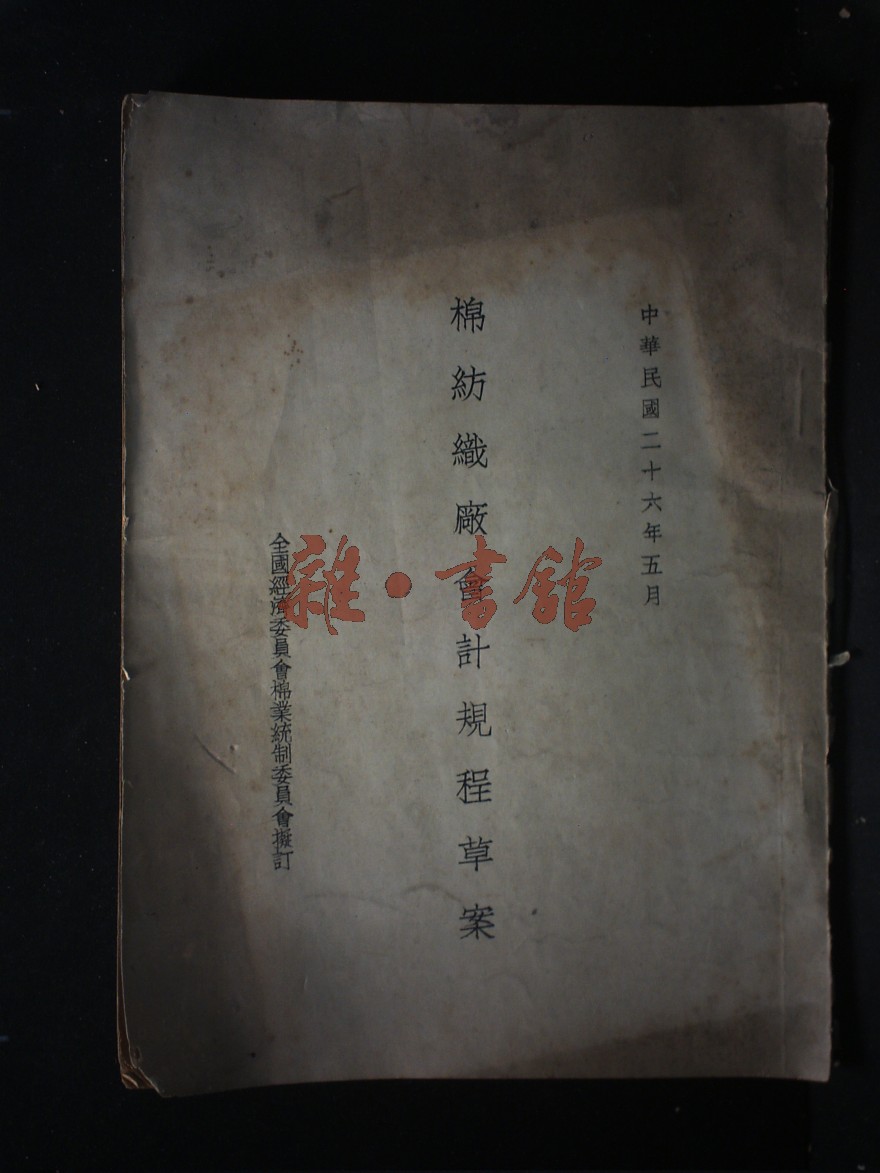 中華民國二十六年五月
棉紡織廠會計規程草案
全國經濟委員會棉業統制委員會擬訂
雜·書館